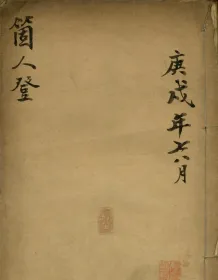 庚戌年七八月
箇人登